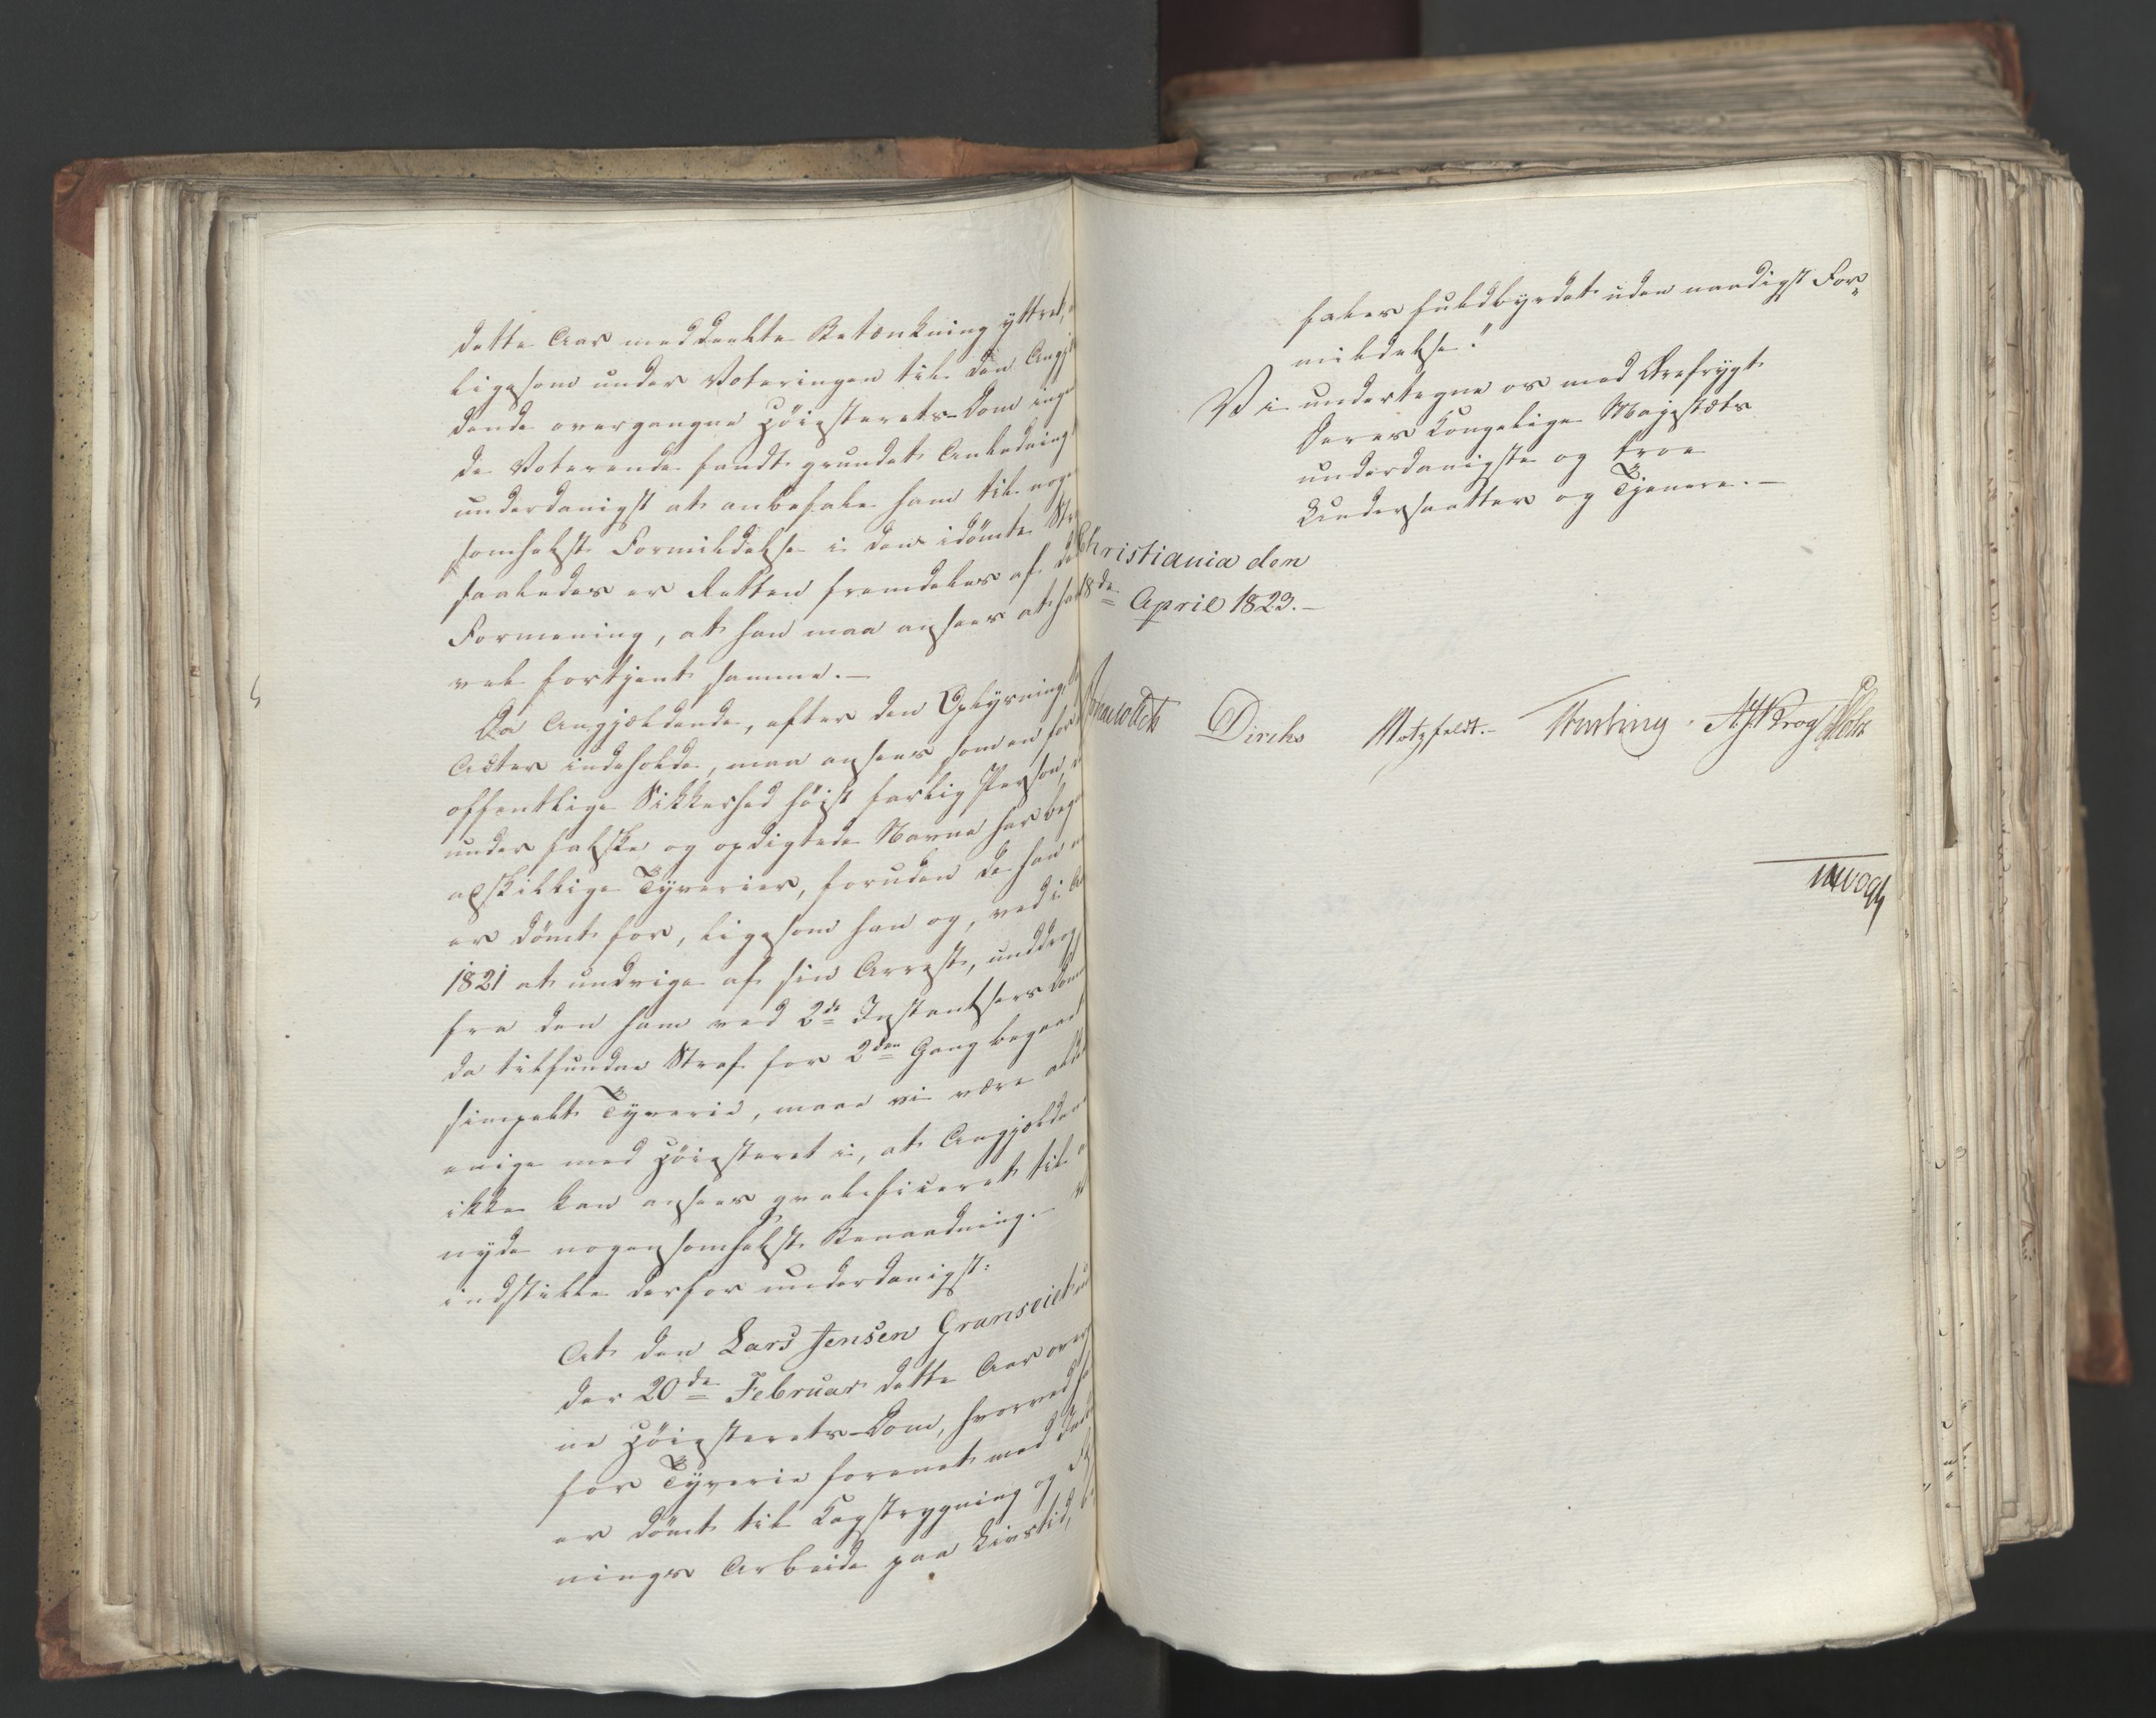 dette Aar meddeelte Betænkning yttret,
ligesom under Voteringen til den Angjæl
dende overgangne Höiesterets-Dom ingen
de Voterende fandt grundet Anledning
underdanigst at anbefale ham til nogen
somhelst Formildelse i den idömte Str
saaledes er Retten fremdeles af de
Formening, at han maa ansees at ha
vel fortjent samme.-
Da Angjældende, efter den Oplysning,
Acter indeholde, maa ansees som en for
offentlige Sikkerhed höist farlig Person,
under falske og opdigtede Navne har beg
adskillige Tyverier, foruden de han
er dömt for, ligesom han og, ved i
1821 at undvige af sin Arrest, unddrog
fra den ham ved 2de Instantsers Dom
da tilfundne Straf for 2den Gang begaaet
simpelt Tyverie, maae vi være
enige med Höiesteret i, at Angjælden
ikke kan ansees qvalificeret til
nyde nogensomhelst Benaadning.-
indstille derfor underdanigst:
At den Lars Jensen Granseiet
der 20de Februar dette Aar over
ne Höiesterets-Dom, hvorved
for Tyverie forenet med
er dömt til Kagstrygning og
nings Arbeide paa Livstid,
fales fuldbyrdet uden naadigst For-
mildelse."
Vi undertegne os med Ærefrygt
Deres Kongelige Majestæts
underdanigste og troe
Undersaatter og Tjenere.-
Christiania den
18de April 1823.-
Diriks Motzfeldt.- Krog